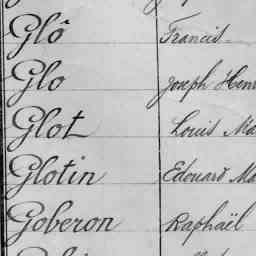 Glô Francis
Glo Joseph Hen
Glot Louis Ma
Glotin Edouard Ma
Goberon Raphaël